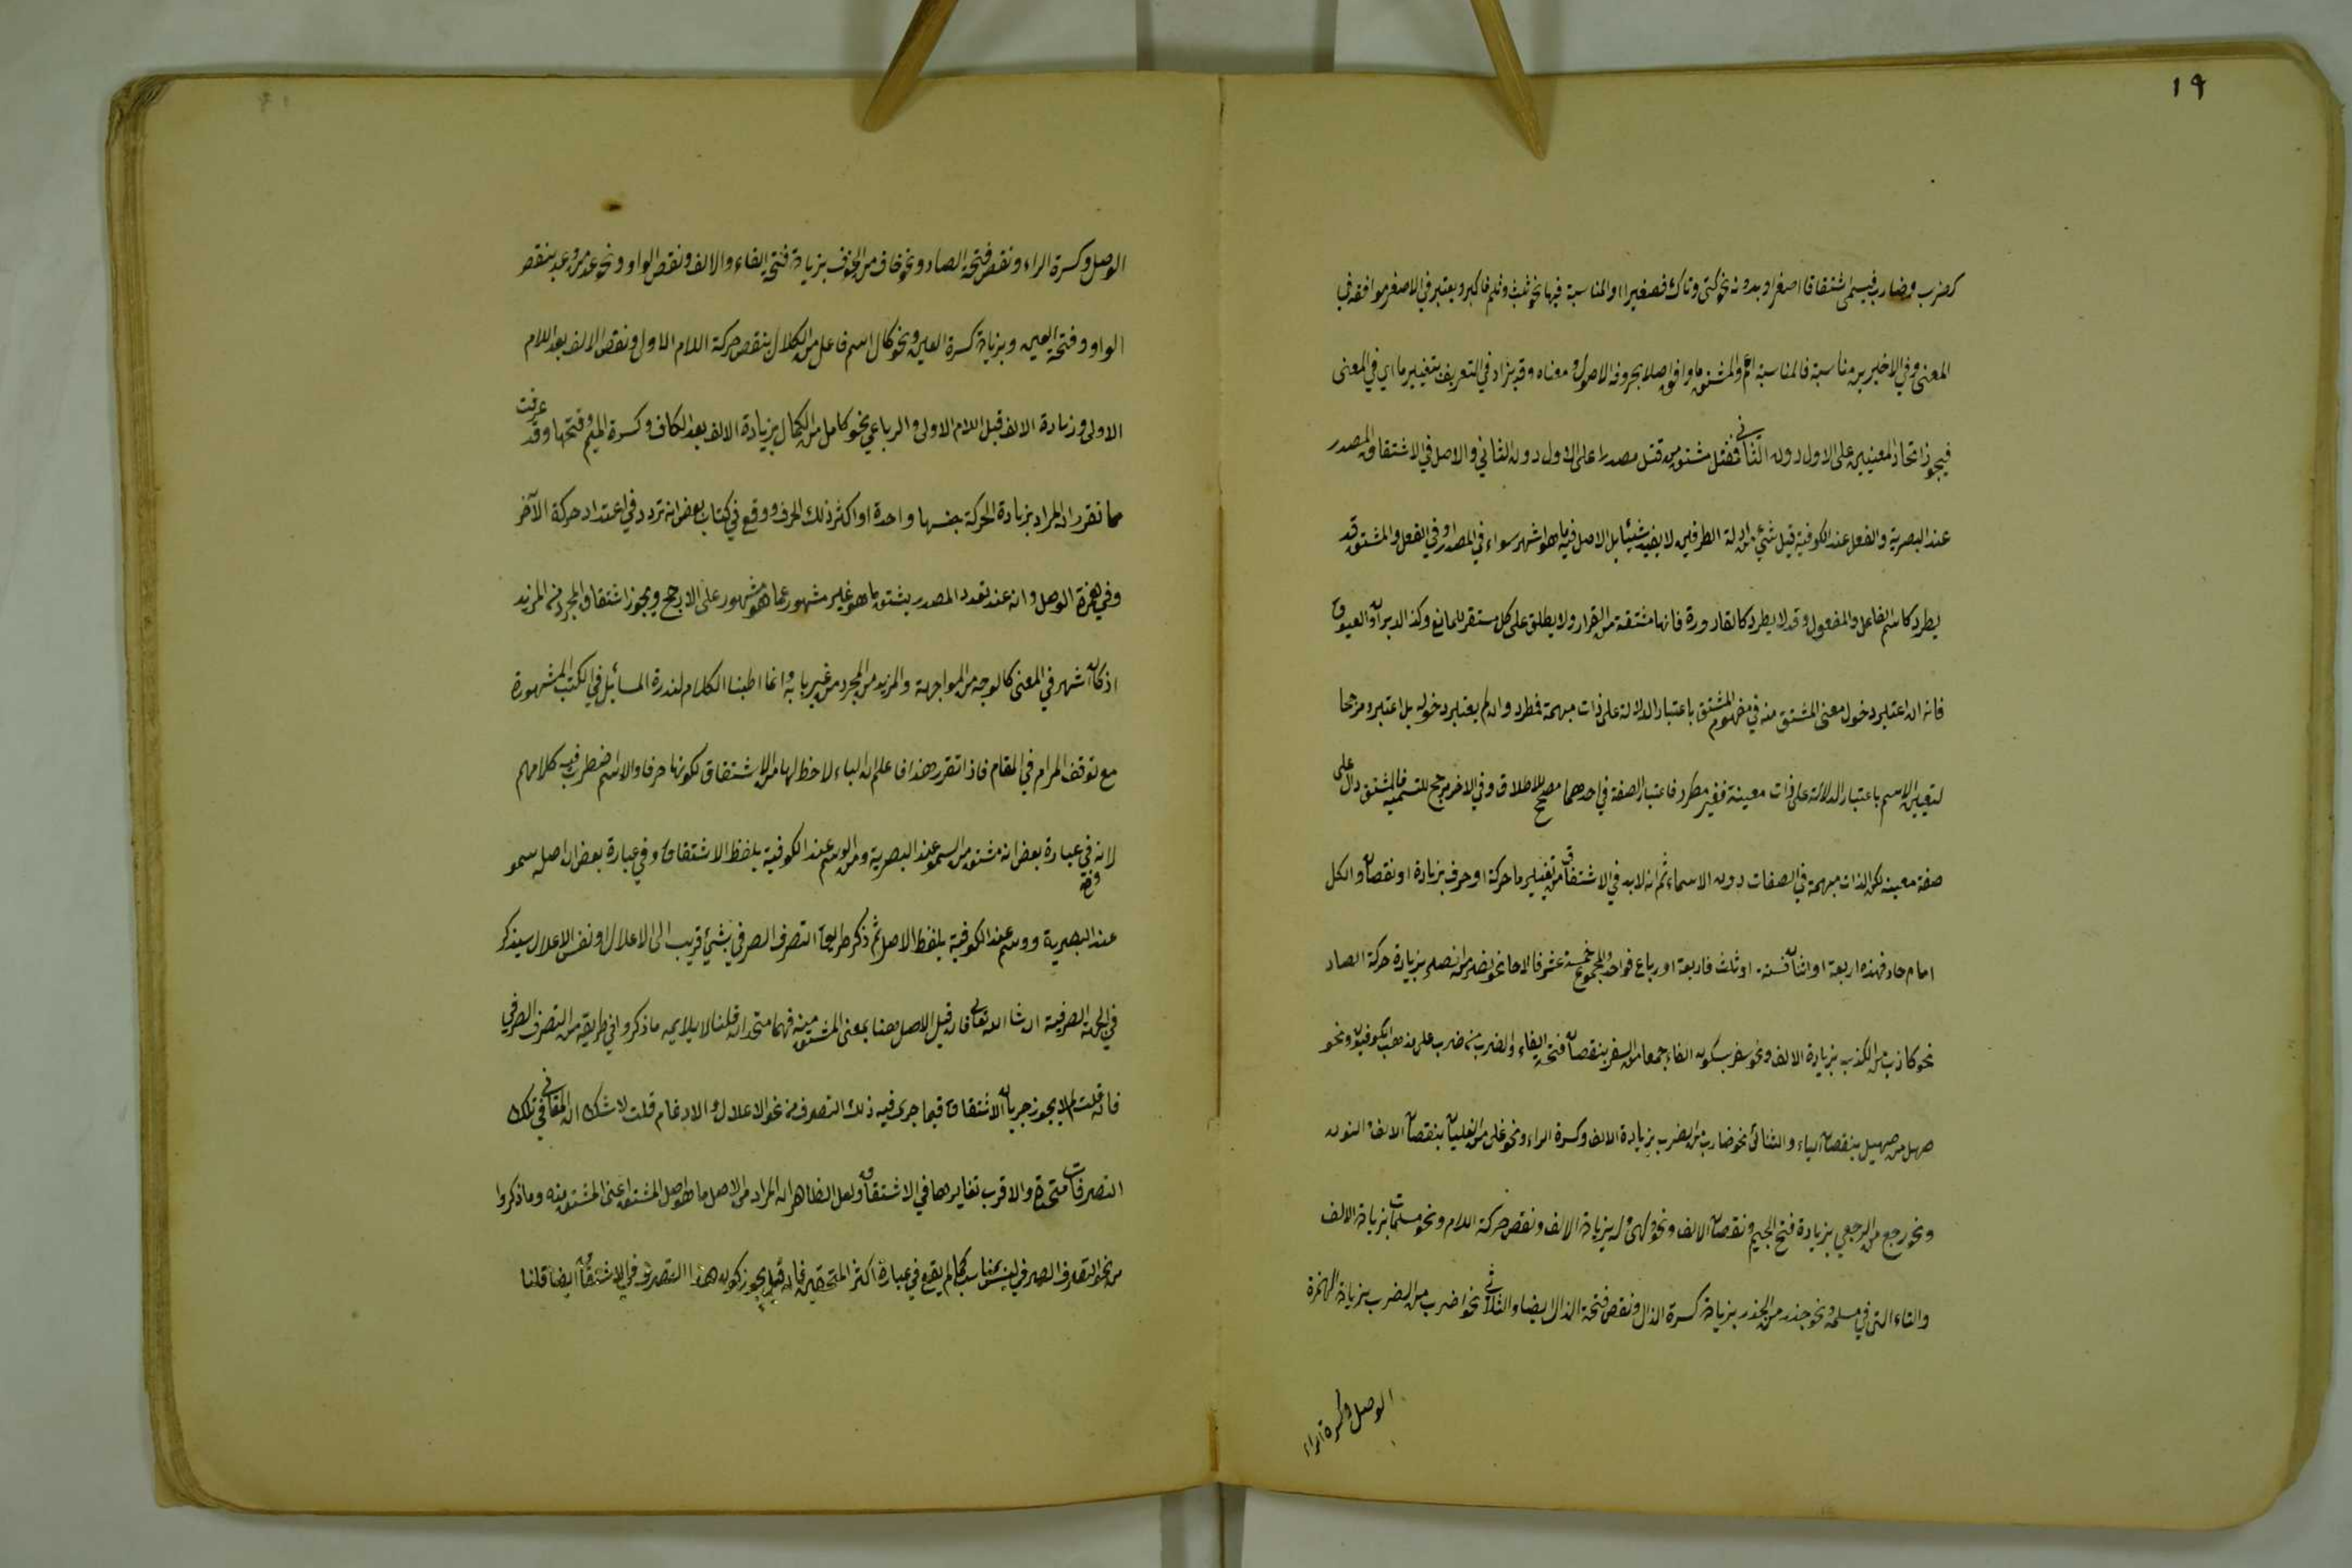 ١٩
كضرب وضارب فيسمى اشتقاقا اصغر او بدونه نحو كنى وناك فصغيرا او المناسبة فيها نحو ثلب وثلم فاكبر ويعتبر في الاصغر موافقة في
المعنى وفي الاخيرين مناسبة فالمناسبة اعم والمشتق ما وافق اصلا بحروفه الاصول ومعناه وقد يزاد في التعريف بتغيير ما اي في المعنى
فيجوز اتحاد المعنيين على الاول دون الثاني فقتل مشتق من قتل مصدرا على الاول دون الثاني والاصل في الاشتقاق المصدر
عند البصرية والفعل عند الكوفية قيل شئ من ادلة الطرفين لا يفيد شيئا بل الاصل فيما هو اشهر سواء في المصدر او في الفعل والمشتق قد
يطرد كاسم الفاعل والمفعول وقد لا يطرد كالقارورة فانها مشتقة من القرار ولا يطلق على كل مستقر للمائع وكذا الدبران والعيوق
فانه ان اعتبر دخول معنى المشتق منه في مفهوم المشتق باعتبار الدلالة على ذات مبهمة فمطرد وان لم يعتبر دخوله بل اعتبر مرجحا
لتعيين الاسم باعتبار الدلالة على ذات معينة فغير مطرد فاعتبار الصفة في احدهما مصحح للاطلاق وفي الاخر مرجح للتسمية فالمشتق دال على
صفة معينة لكن الذات مبهمة في الصفات دون الاسماء ثم انه لابد في الاشتقاق من تغيير ما حركة او حرف بزيادة او نقصان والكل
اما محاد فهذه اربعة او اثنان فستة او ثلث فاربعة او رباع فواحد والمجموع خمسة عشر فالاحاد نحو نصر من نصر بزيادة حركة الصاد
نحو كاذب من الكذب بزيادة الالف ونحو سفر بسكون الفاء جمعا من السفر بنقصان فتحة الفاء والضرب من ضرب على مذهب الكوفيين ونحو
صهل من صهيل بنقصان الياء والثنائى نحو ضارب من الضرب بزيادة الالف وكسرة الراء ونحو غلى من الغليان بنقصان الالف والنون
ونحو رجع من الرجعى بزيادة فتح الجيم ونقصان الالف ونحو بزيادة الالف ونقص حركة اللام ونحو مسلمات بزيادة الالف
والتاء التي في مسلمة ونحو حذر من الحذر بزيادة كسرة الذال ونقص فتحة الذال ايضا والثلاثى نحو اضرب من الضرب بزيادة الهمزة
الوصل وكسرة الراء
الوصل وكسرة الراء ونقص فتحة الصاد ونحو خاف من الخوف بزيادة فتحة الفاء والالف ونقص الواو ونحو عد من وعد بنقص
الواو وفتحة العين وبزيادة كسرة العين ونحو كال اسم فاعل من الكلال بنقص حركة اللام الاول ونقص الالف بعد اللام
الاولى وزيادة الالف قبل اللام الاولى والرباعي نحو كامل من الكمال بزيادة الالف بعد الكاف وكسرة الميم وفتحها وقد عرفت
مما تقرر ان المراد بزيادة الحركة جنسها واحدة او اكثر وكذلك الحرف ووقع في كتاب بعض انه تردد في اعتداد حركة الآخر
وفي همزة الوصل وانه عند تعدد المصدر يشتق ما هو غير مشهور عما هو مشهور على الارجح ويجوز اشتقاق المجرد من المزيد
اذ كان اشهر في المعنى كالوجه من المواجهة والمزيد من المجرد من غير بابه وانما اطنبنا الكلام لندرة المسائل في الكتب المشهورة
مع توقف المرام في المقام فاذا تقرر هذا فاعلم ان الباء لا حظ لها من الاشتقاق لكونها حرفا والاسم اضطرب فيه كلامهم
لانه في عبارة بعض انه مشتق من السمو عند البصرية ومن الوسم عند الكوفية بلفظ الاشتقاق وفي عبارة بعض ان اصله سمو
عند البصرية ووسم عند الكوفية بلفظ الاصل ثم ذكر طريق التصرف الصرفي بشئ قريب الى الاعلال او نفس الاعلال سيذكر
في الجملة الصرفية ان شاء الله تعالى فان قيل الاصل هنا بمعنى المشتق منه فهما متحدان قلنا لا يلايمه ما ذكروا في طريقه من التصرف الصرفي
فان قلت لم لا يجوز جريان الاشتقاق فيما جرى فيه ذلك التصرف من نحو الاعلال والادغام قلت لا شك ان المعاني في تلك
التصرفات متحدة والاقرب تغايرها في الاشتقاق ولعل الظاهر ان المراد من الاصل ما هو اصل المشتق اعنى المشتق منه وما ذكروا
من نحو التصرف الصرفي ليس بمناسب كما لم يقع في عبارة اكثر المحققين فان قيل يجوز كون هذا التصرف في الاشتقاق ايضا قلنا